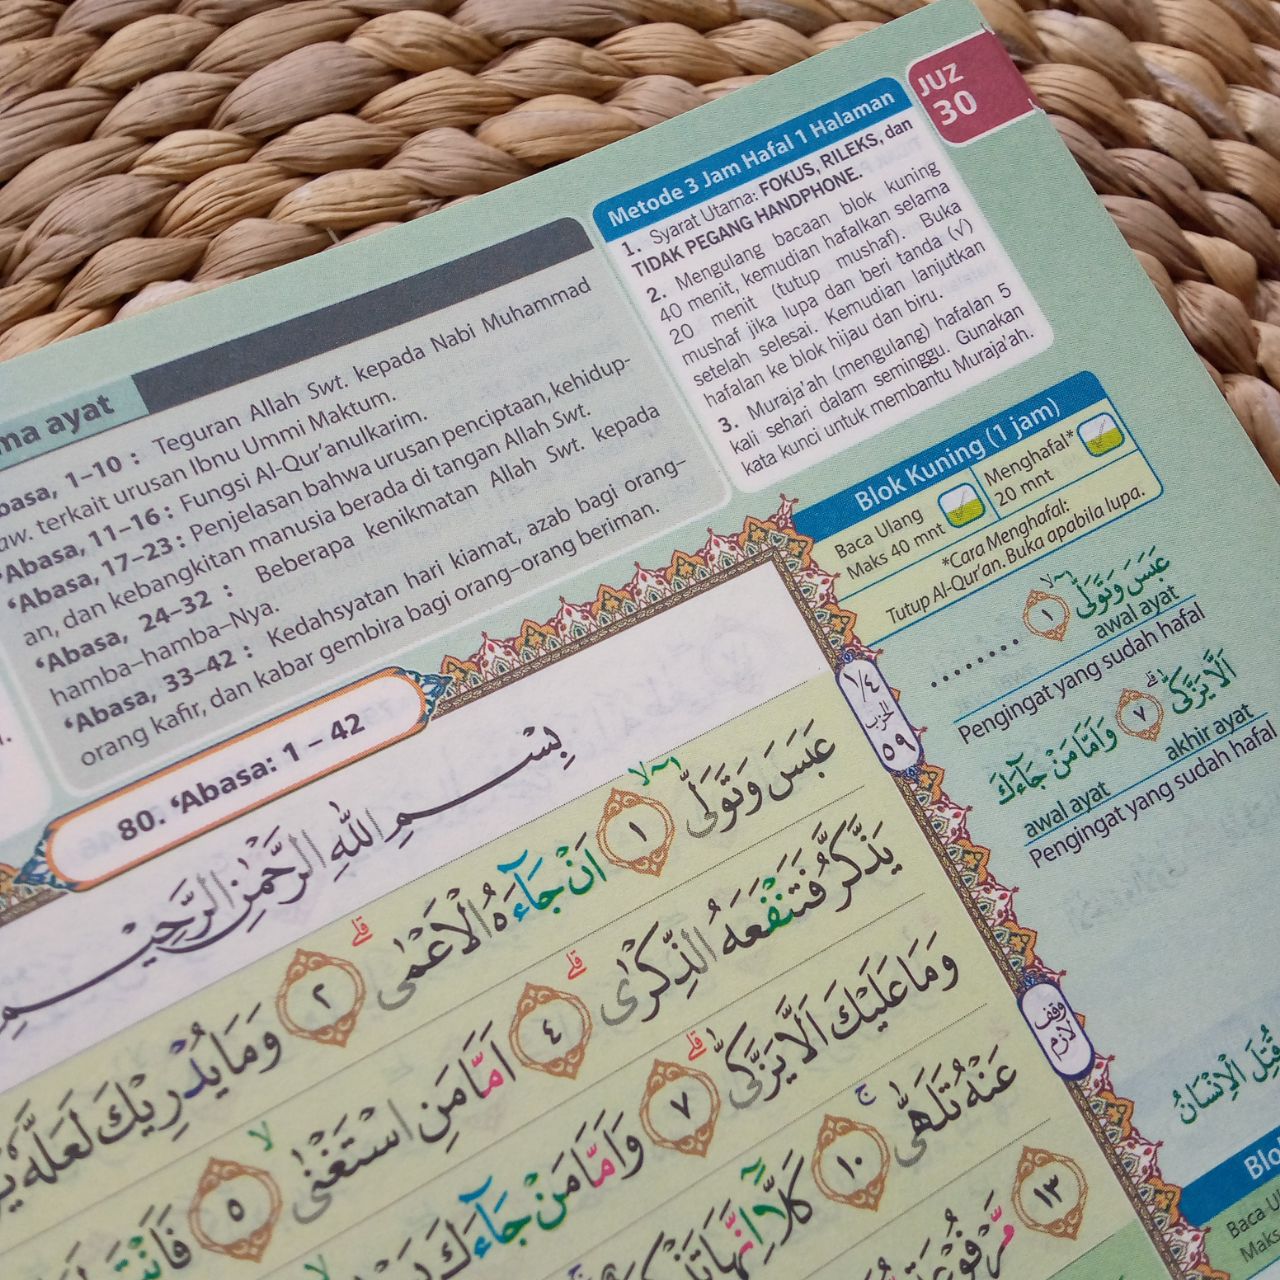 JUZ
30
Metode 3 Jam Hafal 1 Halaman
1. Syarat Utama: FOKUS, RILEKS, dan
TIDAK PEGANG HANDPHONE.
2. Mengulang bacaan blok kuning
40 menit, kemudian hafalkan selama
20 menit (tutup mushaf). Buka
mushaf jika lupa dan beri tanda (√)
setelah selesai. Kemudian lanjutkan
hafalan ke blok hijau dan biru.
3. Muraja'ah (mengulang) hafalan 5
kali sehari dalam seminggu. Gunakan
kata kunci untuk membantu Muraja'ah.
ma ayat
basa, 1–10 : Teguran Allah Swt. kepada Nabi Muhammad
aw. terkait urusan Ibnu Ummi Maktum.
'Abasa, 11–16 : Fungsi Al-Qur'anulkarim.
'Abasa, 17–23 : Penjelasan bahwa urusan penciptaan, kehidup-
an, dan kebangkitan manusia berada di tangan Allah Swt.
'Abasa, 24–32 : Beberapa kenikmatan Allah Swt. kepada
hamba–hamba–Nya.
'Abasa, 33–42 : Kedahsyatan hari kiamat, azab bagi orang–
orang kafir, dan kabar gembira bagi orang–orang beriman.
80. 'Abasa: 1 – 42
بِسْمِ اللهِ الرَّحْمٰنِ الرَّحِيْمِ
عَبَسَ وَتَوَلّٰىٓ ۙ ١ اَنْ جَاۤءَهُ الْاَعْمٰى ۗ ٢ وَمَا يُدْرِيْكَ لَعَلَّهٗ
يَذَّكَّرُ فَتَنْفَعَهُ الذِّكْرٰى ۗ ٤ اَمَّا مَنِ اسْتَغْنٰى ۙ ٥ فَاَنْتَ
وَمَا عَلَيْكَ اَلَّا يَزَّكّٰى ۗ ٧ وَاَمَّا مَنْ جَاۤءَكَ
عَنْهُ تَلَهّٰى ۚ ١٠ كَلَّآ اِنَّهَا
١٣
١/٤
الحزب
٥٩
وقف
لازم
Blok Kuning (1 jam)
Baca Ulang
Maks 40 mnt
Menghafal*
20 mnt
*Cara Menghafal:
Tutup Al-Qur'an. Buka apabila lupa.
عَبَسَ وَتَوَلّٰىٓ ۙ ١ .......
awal ayat
Pengingat yang sudah hafal
اَلَّا يَزَّكّٰى ۗ ٧ وَاَمَّا مَنْ جَاۤءَكَ
akhir ayat
awal ayat
Pengingat yang sudah hafal
قُتِلَ الْاِنْسَانُ
Blo
Baca U
Maks